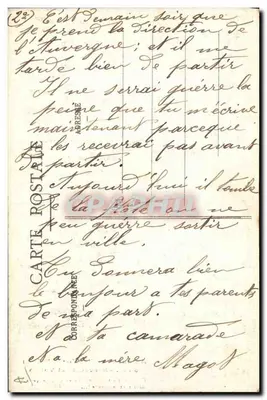 (2e) C'est demain soir que
je prend la direction de
l'Auvergne; et il me
tarde bien de partir
Il ne serrai guérre la
peine que tu m'écrive
maintenant parceque
je les recevrai pas avant
de partir.
Aujourd'hui il tombe
de la on ne
peu guerre sortir
en ville.
Tu donnera bien
le bonjour a tes parents
de ma part.
et a ta camarade
et a la mère Magot
CARTE POSTALE
ADRESSE
CORRESPONDANCE